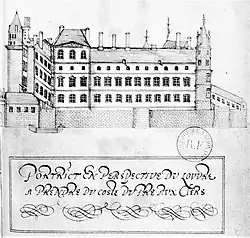 PORTRICT EN PERSPECTIVE DU LOUVRE
A PRENDRE DU COSTE DU PRE AUX CLERS